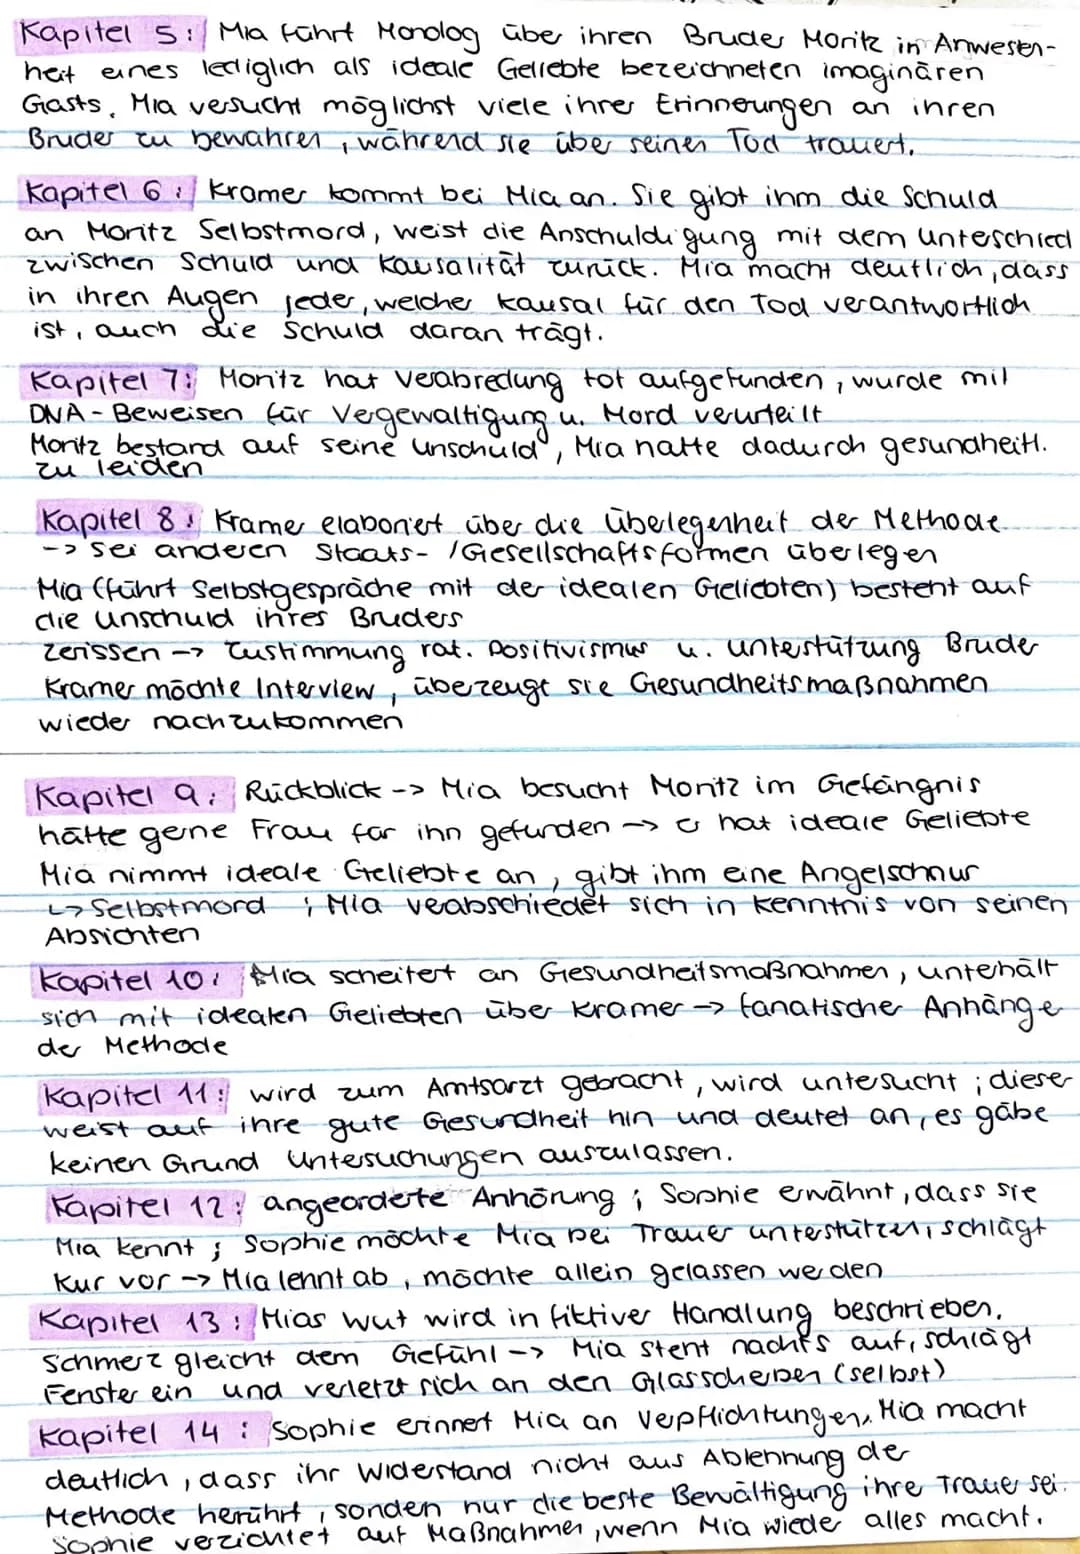 Kapitel 5: Mia führt Monolog über ihren Bruder Moritz in Anwesen-
heit eines lediglich als ideale Geliebte bezeichneten imaginären
Gasts. Mia versucht möglichst viele ihrer Erinnerungen an ihren
Bruder zu bewahren, während sie über seinen Tod trauert.
Kapitel 6: Kramer kommt bei Mia an. Sie gibt ihm die Schuld
an Moritz Selbstmord, weist die Anschuldigung mit dem Unterschied
zwischen Schuld und Kausalität zurück. Mia macht deutlich, dass
in ihren Augen jeder, welcher kausal für den Tod verantwortlich
ist, auch die Schuld daran trägt.
Kapitel 7: Moritz hat Verabredung tot aufgefunden, wurde mit
DNA-Beweisen für Vergewaltigung u. Mord verurteilt
Moritz bestand auf seine Unschuld, Mia hatte dadurch gesundheitl.
zu leiden
Kapitel 8: Kramer elaboriert über die Überlegenheit der Methode
-> sei anderen Staats- /Gesellschaftsformen überlegen
Mia (führt Selbstgespräche mit der idealen Geliebten) besteht auf
die Unschuld ihres Bruders
zerissen -> Zustimmung rat. Positivismus u. Unterstützung Bruder
Kramer möchte Interview, überzeugt sie Gesundheitsmaßnahmen
wieder nachzukommen
Kapitel 9: Rückblick -> Mia besucht Moritz im Gefängnis
hätte gerne Frau für ihn gefunden -> er hat ideale Geliebte
Mia nimmt ideale Geliebte an, gibt ihm eine Angelschnur
↳ Selbstmord ; Mia verabschiedet sich in Kenntnis von seinen
Absichten
Kapitel 10: Mia scheitert an Gesundheitsmaßnahmen, unterhält
sich mit idealen Geliebten über Kramer -> fanatischer Anhänger
der Methode
Kapitel 11: wird zum Amtsarzt gebracht, wird untersucht ; dieser
weist auf ihre gute Gesundheit hin und deutet an, es gäbe
keinen Grund Untersuchungen auszulassen.
Kapitel 12: angeorderte Anhörung ; Sophie erwähnt, dass sie
Mia kennt ; Sophie möchte Mia bei Trauer unterstützen, schlägt
Kur vor -> Mia lehnt ab, möchte allein gelassen werden
Kapitel 13: Mias Wut wird in fiktiver Handlung beschrieben.
Schmerz gleicht dem Gefühl -> Mia steht nachts auf, schlägt
Fenster ein und verletzt sich an den Glasscherben (selbst)
Kapitel 14: Sophie erinnert Mia an Verpflichtungen, Mia macht
deutlich, dass ihr Widerstand nicht aus Ablehnung der
Methode herührt, sondern nur die beste Bewältigung ihre Trauer sei.
Sophie verzichtet auf Maßnahmen, wenn Mia wieder alles macht.